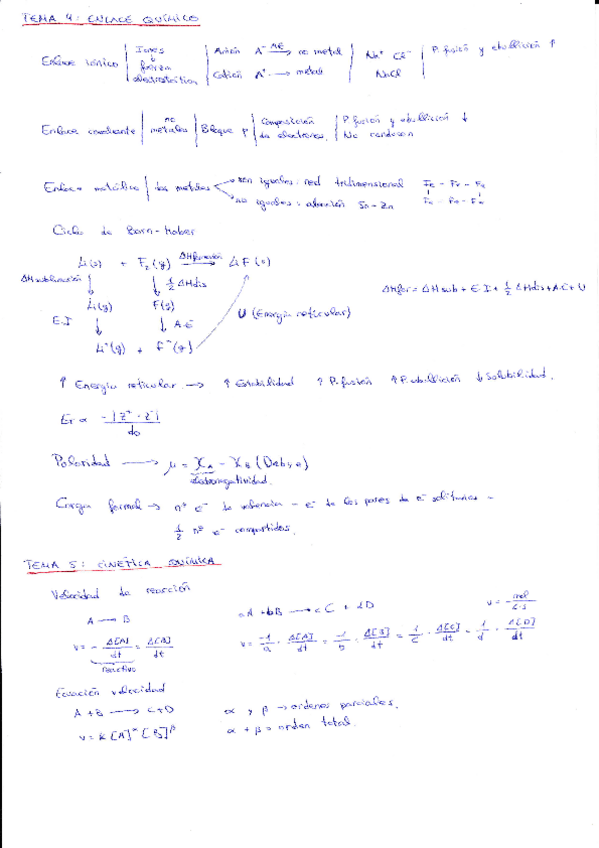 TEMA 4: ENLACE QUÍMICO
Enlace iónico | Iones ↓ fuerza electrostática | Anión A⁻ AE → no metal | Na⁺ Cl⁻ | P. fusión y ebullición ↑
Catión A⁺ → metal | NaCl
Enlace covalente | no metales | Bloque P | Compartición de electrones. | P. fusión y ebullición ↓
No conducen
Enlace metálico | dos metales → son iguales: red tridimensional Fe - Fe - Fe
→ no iguales: aleación Sn-Zn Fe - Fe - Fe
Ciclo de Born-Haber
Li(s) + F₂(g) ΔHformación → LiF(s)
ΔHsublimación ↓ ↓ ½ ΔHdis
Li(g) F(g) U (Energía reticular)
ΔHfor = ΔHsub + E.I + ½ ΔHdis + A.E + U
E.I ↓ ↓ A.E
Li⁺(g) + F⁻(g)
↑ Energía reticular → ↑ Estabilidad ↑ P. fusión ↑ P. ebullición ↓ Solubilidad.
Er ∝ -|Z⁺ · Z⁻| / do
Polaridad → μ = XA - XB (Debye)
electronegatividad.
Carga formal → nº e⁻ de valencia - e⁻ de los pares de e⁻ solitarios -
½ nº e⁻ compartidos.
TEMA 5: CINÉTICA QUÍMICA
Velocidad de reacción
A → B aA + bB → cC + dD v = mol / L·s
v = - Δ[A]/dt = Δ[B]/dt v = -1/a · Δ[A]/dt = -1/b · Δ[B]/dt = 1/c · Δ[C]/dt = 1/d · Δ[D]/dt
reactivo
Ecuación velocidad
A + B → C + D α y β → ordenes parciales.
v = K [A]^α [B]^β α + β = orden total.